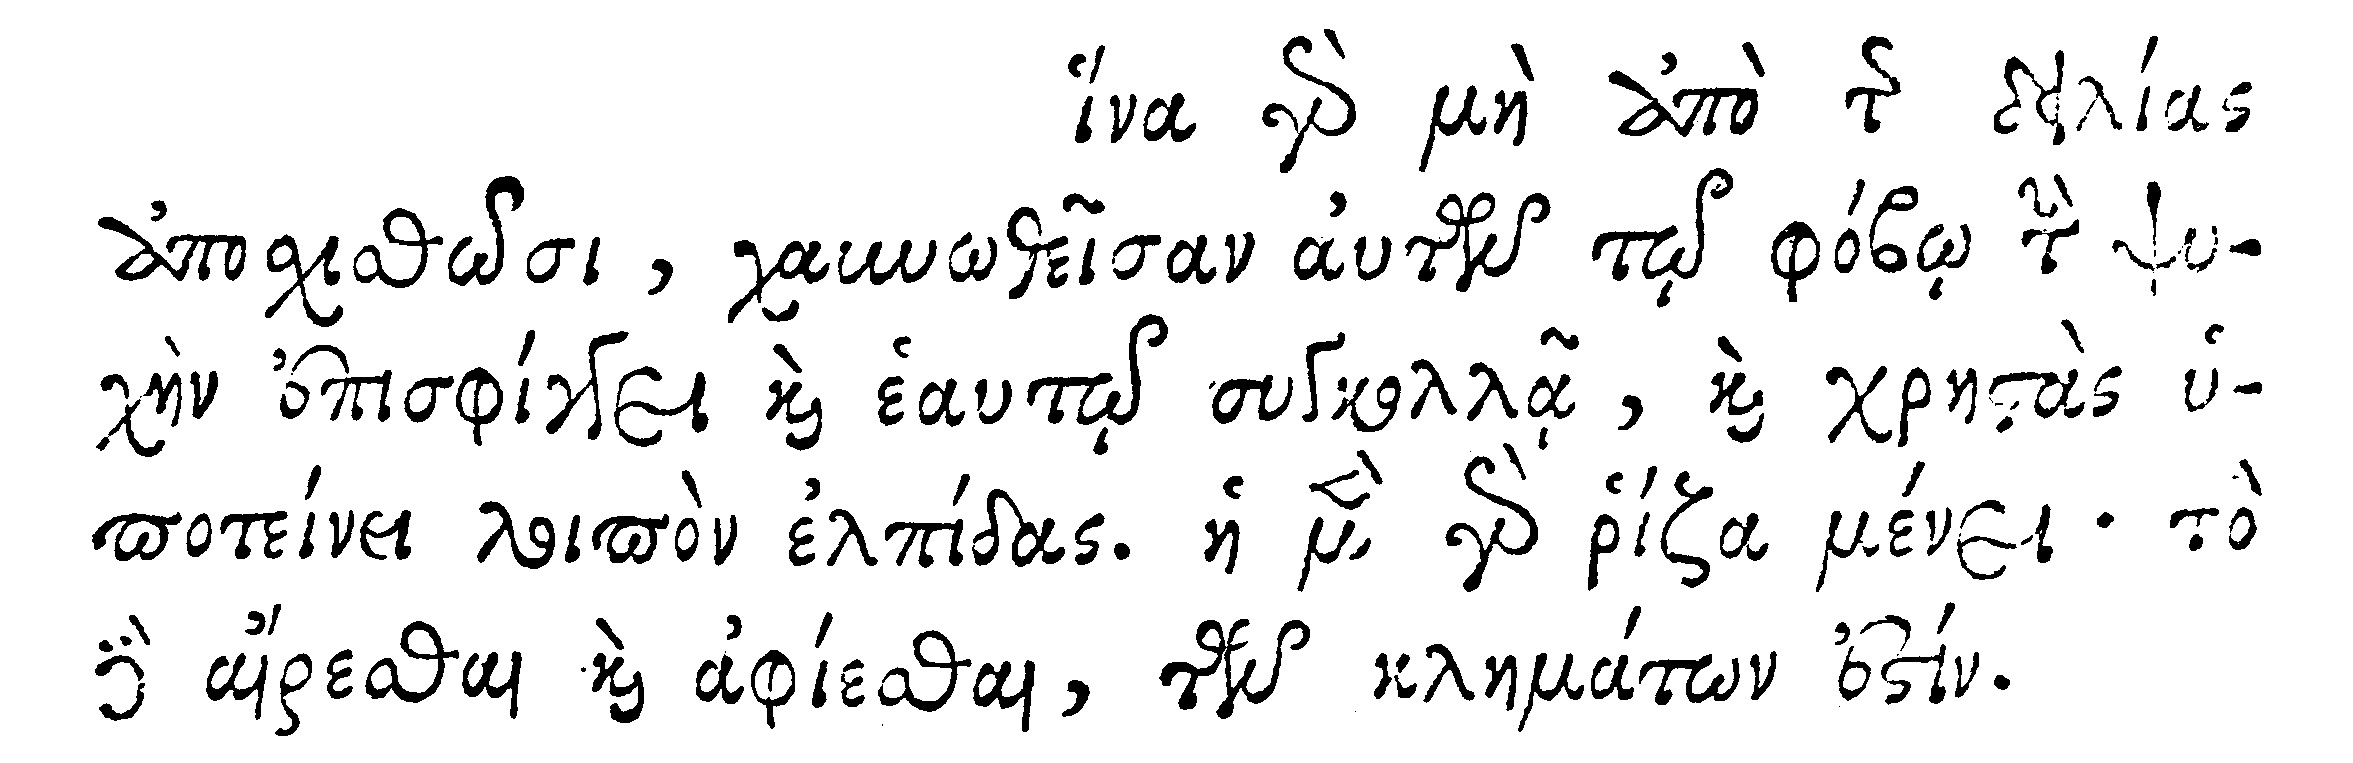 ἵνα γὰρ μὴ ἀπὸ τῆς δειλίας
ἀποσχισθῶσι, χαυνωθεῖσαν αὐτῶν τῷ φόβῳ τὴν ψυ-
χὴν ἐπισφίγγει καὶ ἑαυτῷ συγκολλᾷ, καὶ χρηστὰς ὑ-
ποτείνει λοιπὸν ἐλπίδας. ἡ μὲν γὰρ ῥίζα μένει· τὸ
δὲ αἴρεσθαι καὶ ἀφίεσθαι, τῶν κλημάτων ἐστίν.